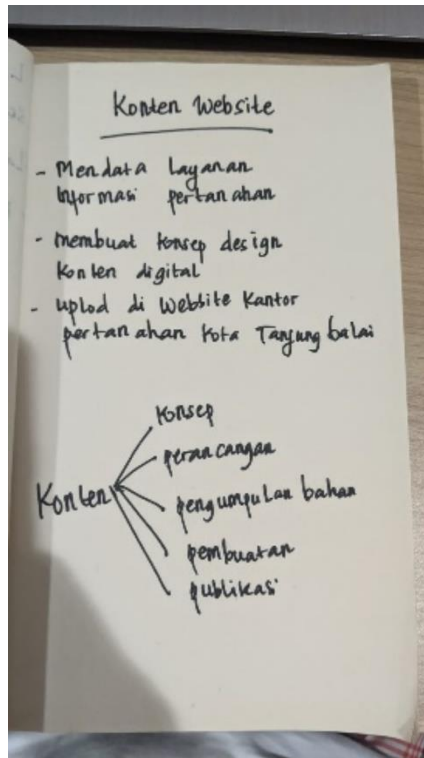 Konten Website
- Mendata Layanan
Informasi pertanahan
- membuat konsep design
Konten digital
- uplod di Website Kantor
pertanahan Kota Tanjung balai
Konsep
perancangan
Konten
pengumpulan bahan
pembuatan
publikasi